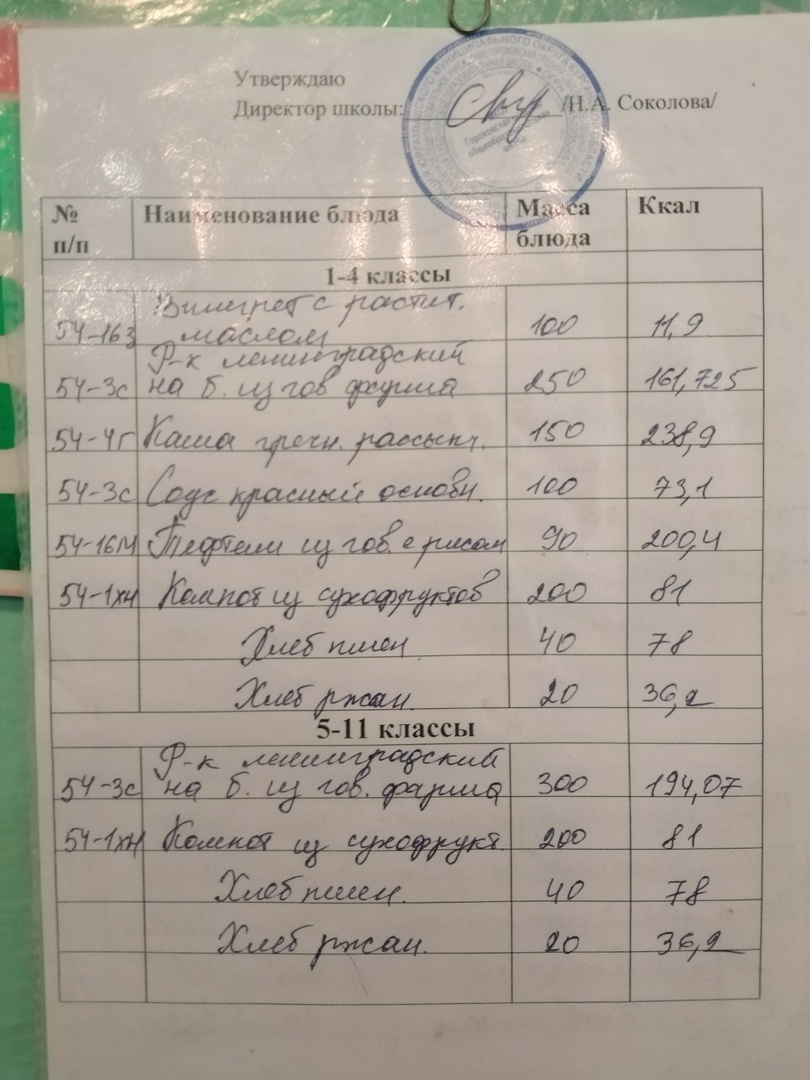 Утверждаю
Директор школы: /Н.А. Соколова/
№ п/п Наименование блюда Масса блюда Ккал
1-4 классы
Винегрет с растит.
54-16з маслом 100 11,9
Р-к ленинградский
54-3с на б. из гов фарша 250 161,725
54-4г Каша гречн. рассыпч. 150 238,9
54-3с Соус красный основн. 100 73,1
54-16м Тефтели из гов. с рисом 90 200,4
54-1хн Компот из сухофруктов 200 81
Хлеб пшен 40 78
Хлеб ржан. 20 36,2
5-11 классы
Р-к ленинградский
54-3с на б. из гов. фарша 300 194,07
54-1хн Компот из сухофрукт. 200 81
Хлеб пшен. 40 78
Хлеб ржан. 20 36,2